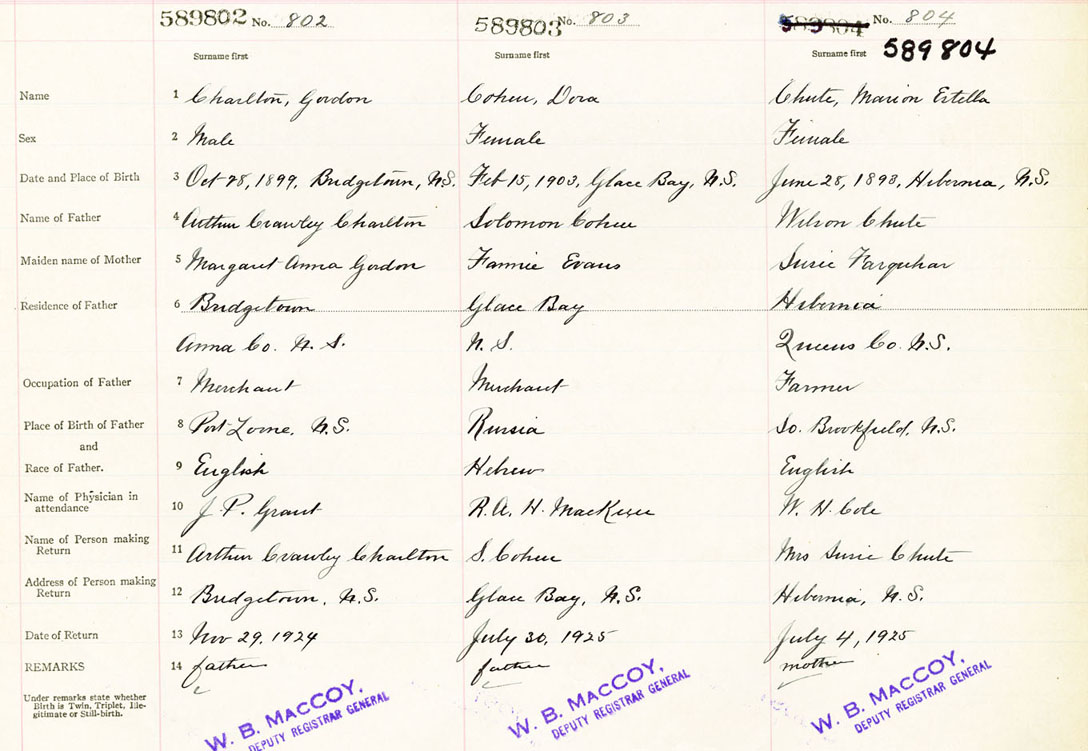 589802 No. 802 589803 No. 803 589804 No. 804
Surname first Surname first Surname first 589804
Name 1 Charlton, Gordon Cohen, Dora Chute, Marion Estella
Sex 2 Male Female Female
Date and Place of Birth 3 Oct 28, 1899, Bridgetown, N.S. Feb 15, 1903, Glace Bay, N.S. June 28, 1893, Hibernia, N.S.
Name of Father 4 Arthur Crawley Charlton Solomon Cohen Wilson Chute
Maiden name of Mother 5 Margaret Anna Gordon Fannie Evans Susie Farquhar
Residence of Father 6 Bridgetown Glace Bay Hibernia
Anna Co. N. S. N. S. Queens Co. N.S.
Occupation of Father 7 Merchant Merchant Farmer
Place of Birth of Father 8 Port Lorne, N.S. Russia So. Brookfield, N.S.
and
Race of Father. 9 English Hebrew English
Name of Physician in
attendance 10 J. P. Grant R. A. H. MacKeen W. H. Cole
Name of Person making
Return 11 Arthur Crawley Charlton S. Cohen Mrs Susie Chute
Address of Person making
Return 12 Bridgetown, N.S. Glace Bay, N.S. Hibernia, N.S.
Date of Return 13 Nov 29, 1924 July 30, 1925 July 4, 1925
REMARKS 14 father father mother
Under remarks state whether
Birth is Twin, Triplet, Ille-
gitimate or Still-birth.
W. B. MACCOY, W. B. MACCOY, W. B. MACCOY,
DEPUTY REGISTRAR GENERAL DEPUTY REGISTRAR GENERAL DEPUTY REGISTRAR GENERAL